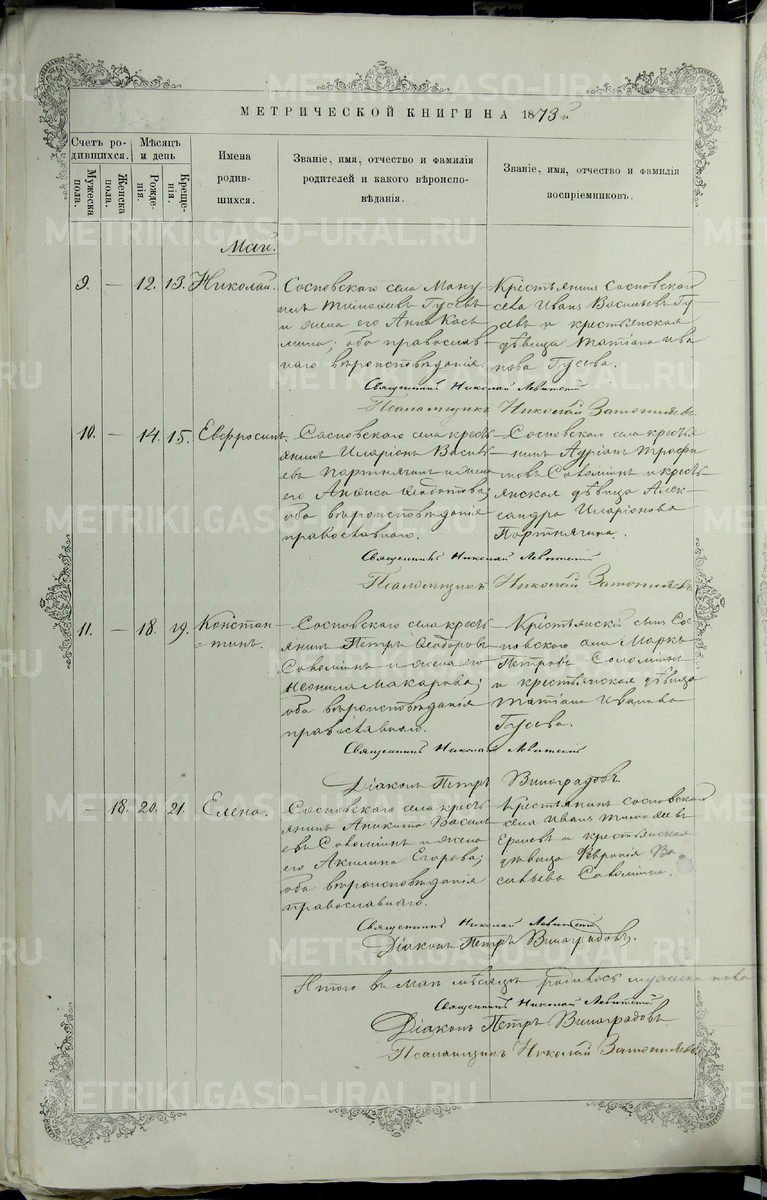 МЕТРИЧЕСКОЙ КНИГИ НА 1873й
Счетъ ро-
дившихся.
Мужеска
пола.
Женска
пола.
Мѣсяцъ
и день
Рожде-
нія.
Креще-
нія.
Имена
родив-
шихся.
Званіе, имя, отчество и фамилія
родителей и какого вѣроиспо-
вѣданія.
Званіе, имя, отчество и фамилія
воспріемниковъ.
Май.
9. — 12. 13. Николай.
Сосновского села Ману
илъ Тимофеевъ Гусевъ
и жена его Анна Кось
мина; оба православ-
наго вѣроисповѣданія.
Крестьянинъ Сосновского
села Иванъ Васильевъ Гу-
севъ и крестьянская
дѣвица Татіана Ива
нова Гусева.
Священникъ Николай Левитскій
Псаломщикъ Николай
10. — 14. 15. Евфросинъ.
Сосновского села кресть
янинъ Иларіонъ Василь
евъ Портнягинъ и жена
его Анфиса Федотова;
оба вѣроисповѣданія
православнаго.
Сосновского села крестья
нинъ Адріанъ Трофи
мовъ Соломѣинъ и кресть-
янская дѣвица Алек-
сандра Иларіонова
Портнягина.
Священникъ Николай Левитскій
Псаломщикъ Николай
11. — 18. 19. Констан-
тинъ.
Сосновского села кресть
янинъ Петръ Ѳеодоровъ
Соломѣинъ и жена его
Неонила Макарова;
оба вѣроисповѣданія
православнаго.
Крестьянскій сынъ Сос-
новского села Маркъ
Петровъ Соломѣинъ
и крестьянская дѣвица
Татіана Иванова
Гусева.
Священникъ Николай Левитскій
Діаконъ Петръ Виноградовъ
— 18. 20. 21. Елена.
Сосновского села кресть
янинъ Аникита Василь
евъ Соломѣинъ и жена
его Акилина Егорова;
оба вѣроисповѣданія
православнаго.
Крестьянинъ Сосновского
села Иванъ Тимофеевъ
и крестьянская
дѣвица Февронія Ва
сильева Соломѣина.
Священникъ Николай Левитскій
Діаконъ Петръ Виноградовъ.
Итого въ Маѣ мѣсяцѣ родилось мужеска пола
Священникъ Николай Левитскій
Діаконъ Петръ Виноградовъ
Псаломщикъ Николай
METRIKI.GASO-URAL.RU